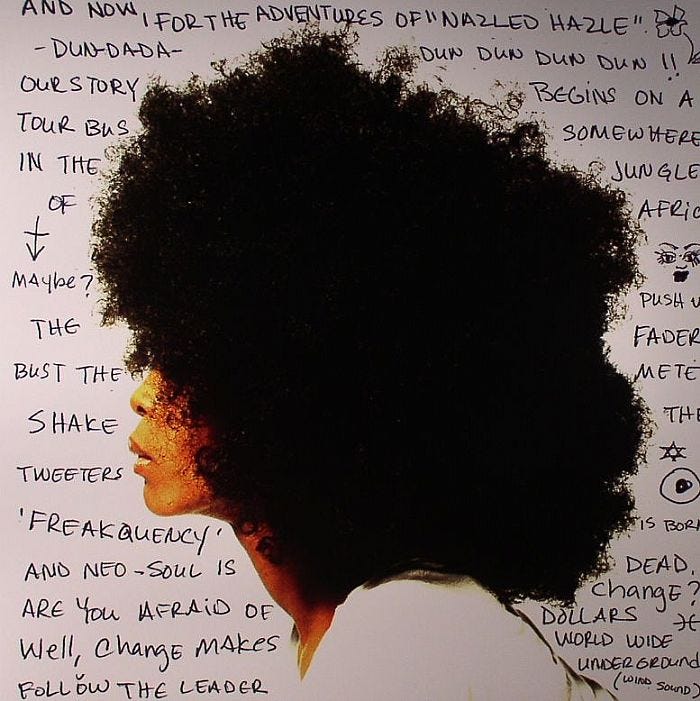 AND NOW, FOR THE ADVENTURES OF "NAZLED HAZLE".
-DUN-DADA- DUN DUN DUN DUN DUN !!
OUR STORY BEGINS ON A
TOUR BUS SOMEWHERE
IN THE JUNGLE
OF AFRIC
MAYbe? PUSH U
THE FADER
BUST THE METE
SHAKE THE
TWEETERS
'FREAKQUENCY' IS BOR
AND NEO-SOUL IS DEAD.
ARE YOU AFRAID OF Change?
Well, Change MAKES DOLLARS
FOLLOW THE LEADER WORLD WIDE
UNDERGROUND
(WIND SOUND)